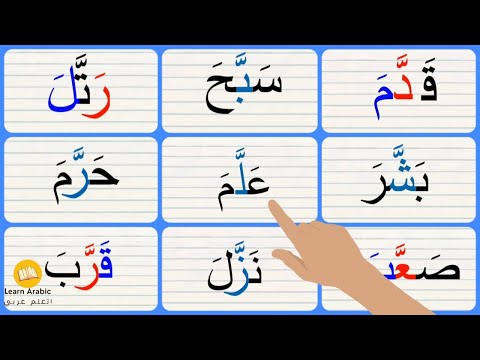 قَدَّمَ سَبَّحَ رَتَّلَ
بَشَّرَ عَلَّمَ حَرَّمَ
نَزَّلَ قَرَّبَ
Learn Arabic
اتعلم عربي